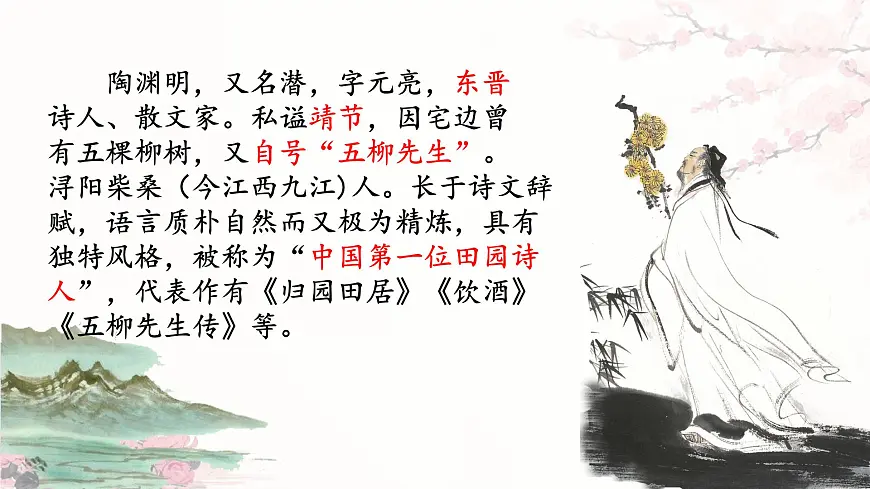 陶渊明，又名潜，字元亮，东晋
诗人、散文家。私谥靖节，因宅边曾
有五棵柳树，又自号“五柳先生”。
浔阳柴桑（今江西九江)人。长于诗文辞
赋，语言质朴自然而又极为精炼，具有
独特风格，被称为“中国第一位田园诗
人”，代表作有《归园田居》《饮酒》
《五柳先生传》等。